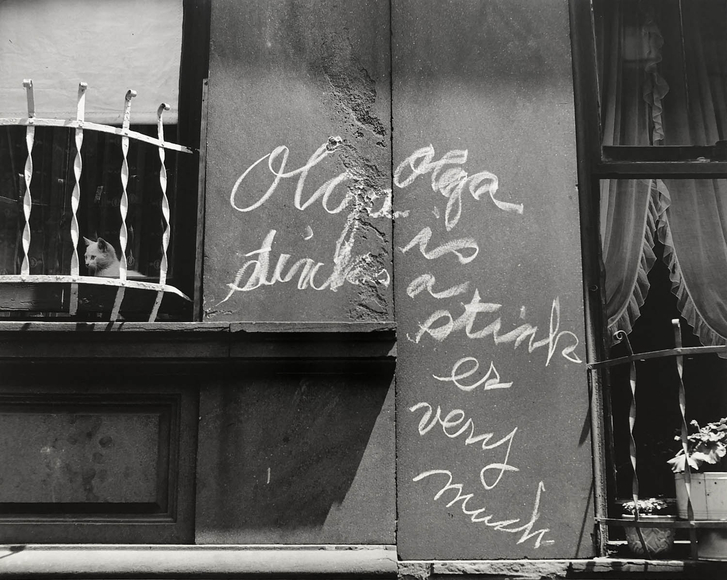 Olga
stinks
Olga
is
a
stink
es
very
much